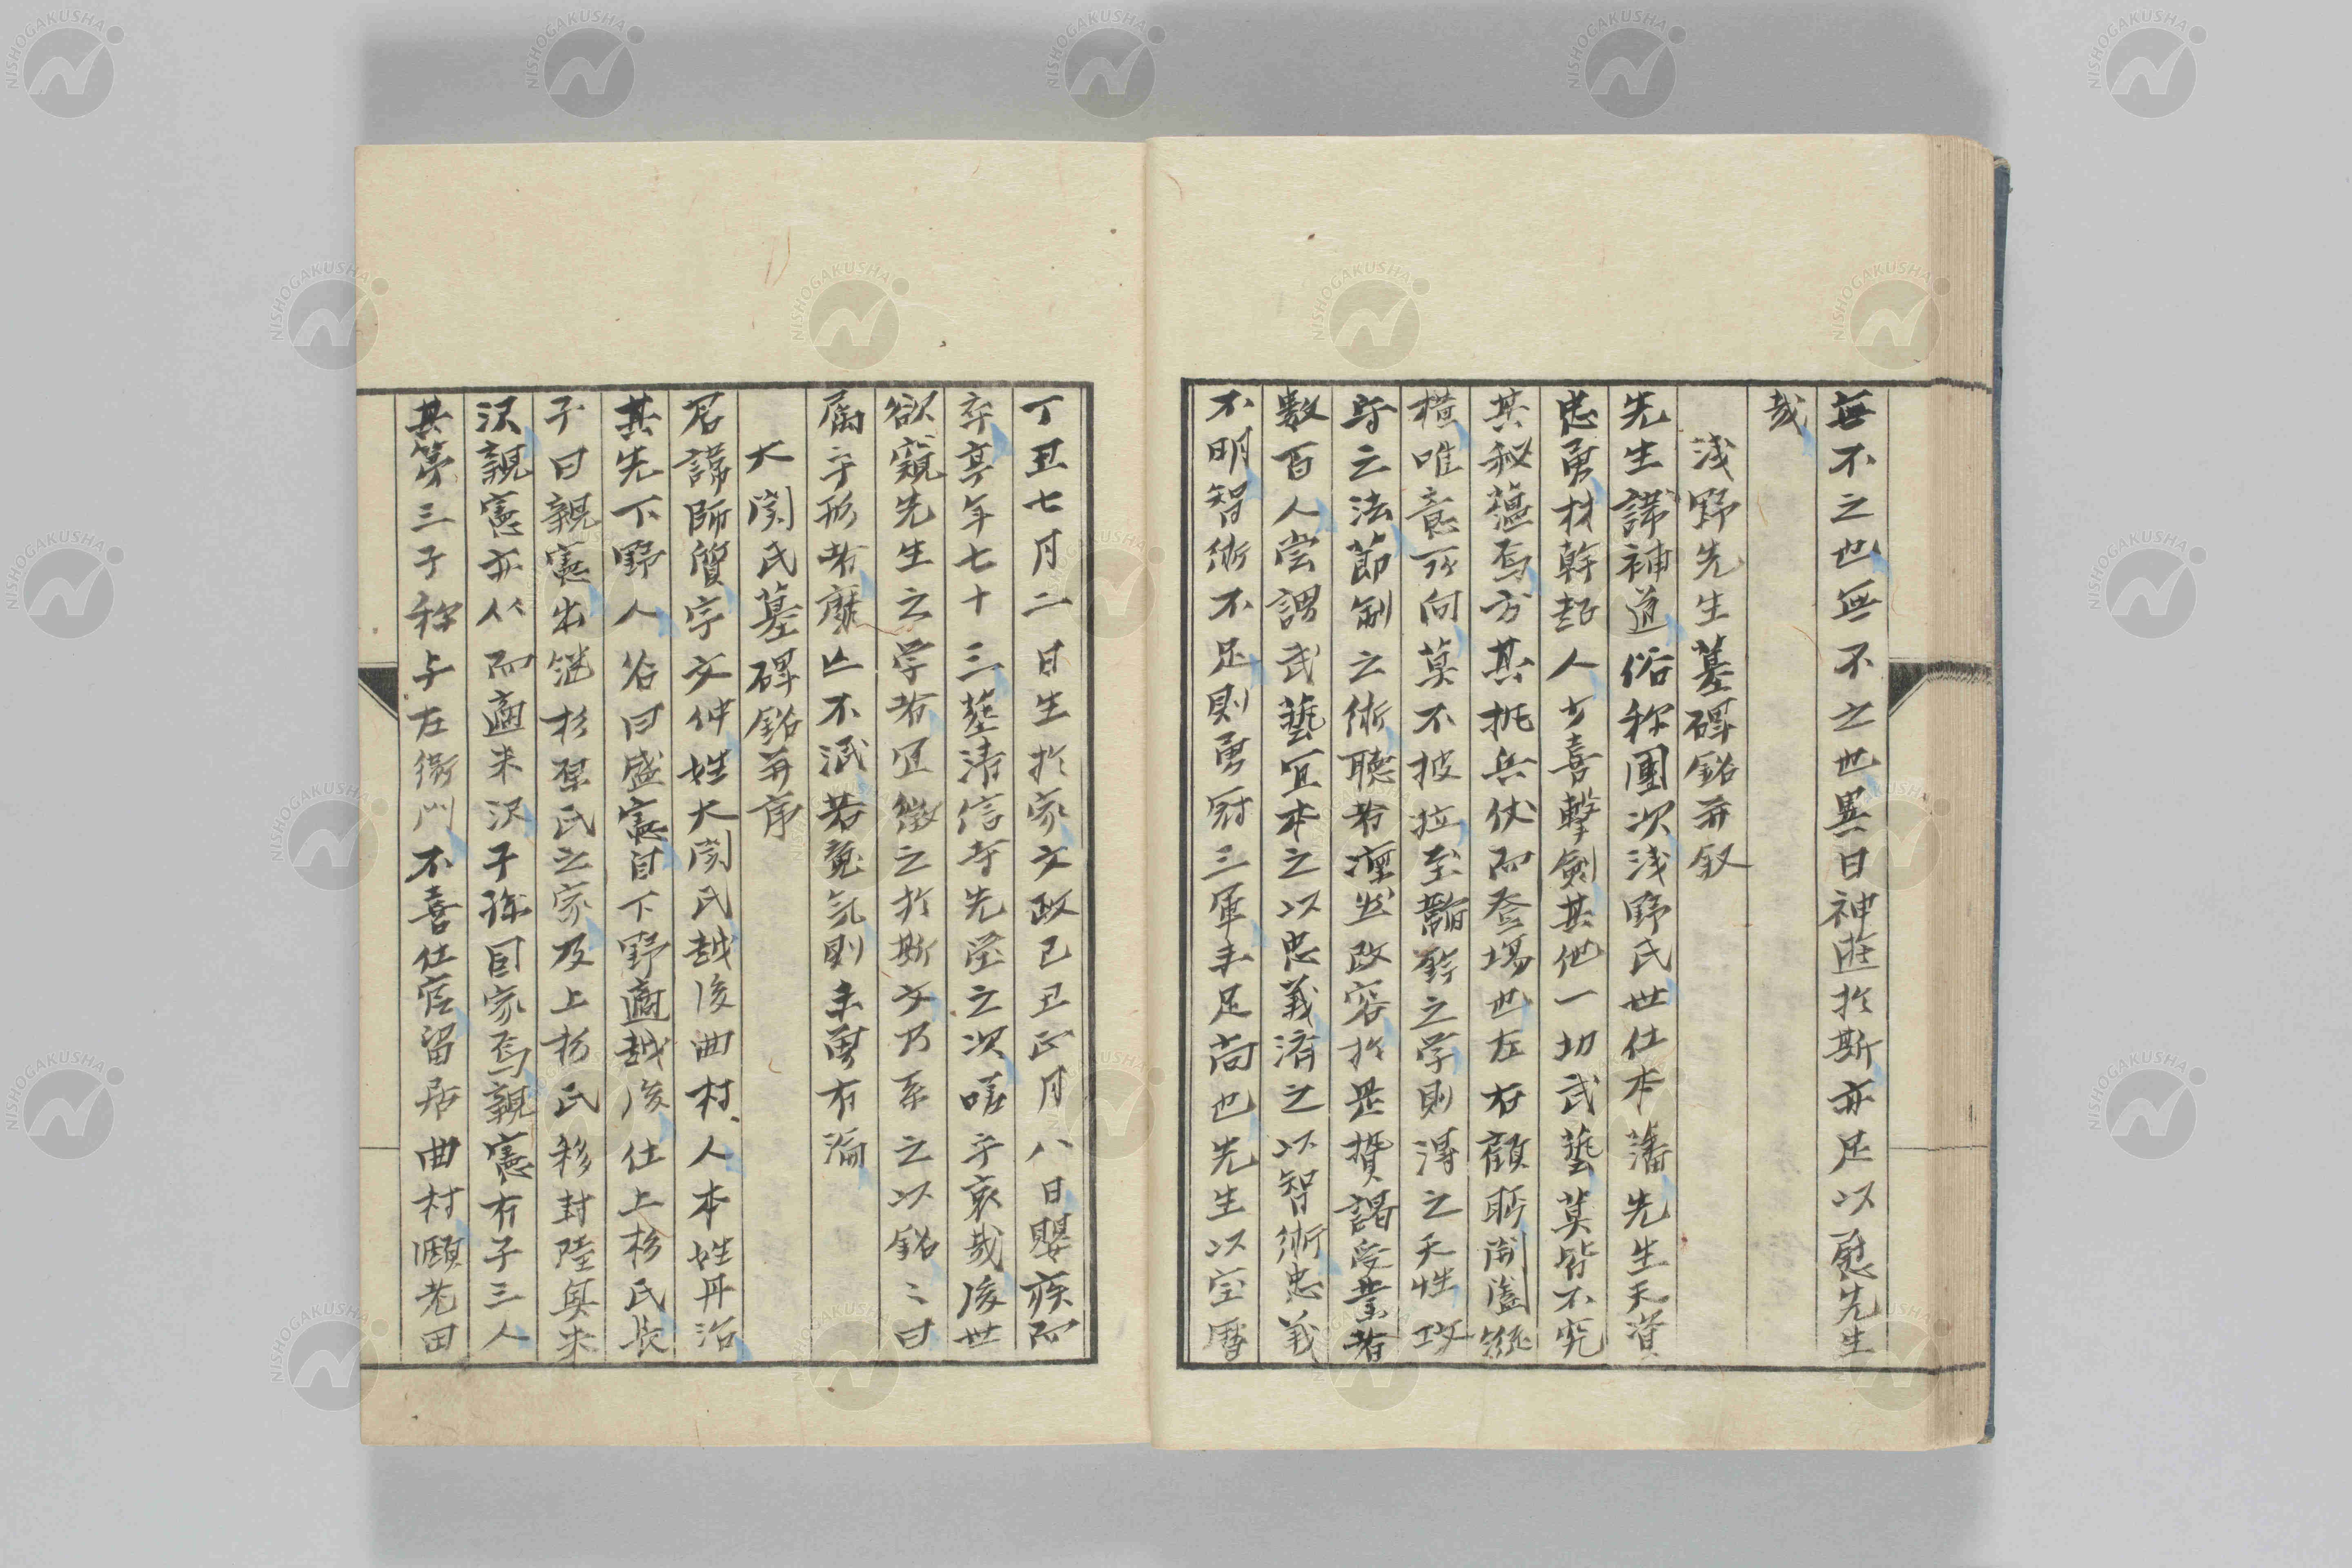 無不之也無不之也異日神遊於斯亦足以慰先生
哉
淺野先生墓碑銘并叙
先生諱補道俗称團次淺野氏世仕本藩先生天資
忠勇材幹起人少喜擊劍其他一切武藝莫皆不究
其秘蘊焉方其挑兵仗而登場也左右顧眄闔闢縱
橫唯意所向莫不披拉至韜鈐之学則得之天性攻
守之法節制之術聽者凜然改容於是摯贄謁受業者
數百人嘗謂武藝宜本之以忠義濟之以智術忠義
不明智術不足則勇冠三軍未足尚也先生以宝曆
丁丑七月二日生於家文政己丑正月八日嬰疾而
卒享年七十三葬清信寺先塋之次嗟乎哀哉後世
欲窺先生之学者宜徵之於斯文乃系之以銘〻曰
属乎形者靡亡不泯若夐氣則未曾有淪
大関氏墓碑銘并序
君諱師質字文仲姓大関氏越後曲村人本姓丹治
其先下野人谷曰盛憲自下野適越後仕上杉氏長
子曰親憲出継杉原氏之家及上杉氏移封陸奥米
沢親憲亦从而適米沢子孫因家焉親憲有子三人
其第三子称与左衛門不喜仕宦留居曲村頤老田